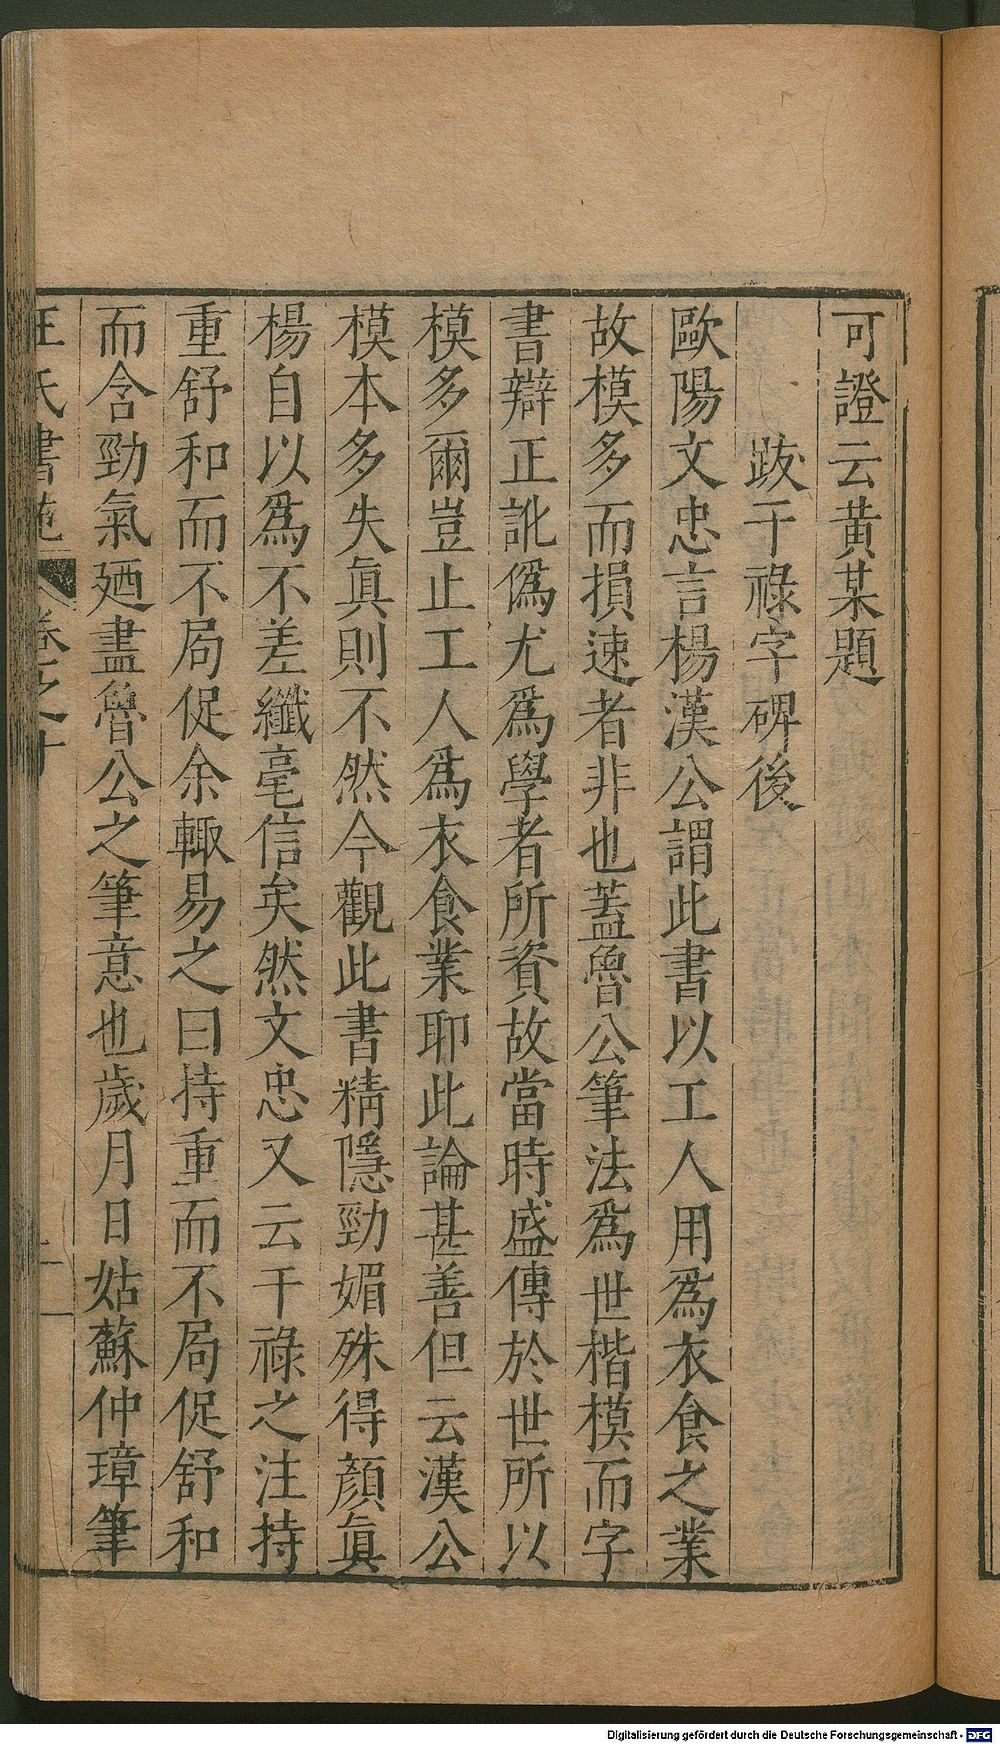 可證云黃某題
跋干祿字碑後
歐陽文忠言楊漢公謂此書以工人用爲衣食之業
故模多而損速者非也蓋魯公筆法爲世楷模而字
書辯正訛僞尤爲學者所資故當時盛傳於世所以
模多爾豈止工人爲衣食業耶此論甚善但云漢公
模本多失眞則不然今觀此書精隱勁媚殊得顏眞
楊自以爲不差纖毫信矣然文忠又云干祿之注持
重舒和而不局促余輙易之曰持重而不局促舒和
而含勁氣廼盡魯公之筆意也歲月日姑蘇仲璋筆
王氏書苑 卷之十
Digitalisierung gefördert durch die Deutsche Forschungsgemeinschaft - DFG